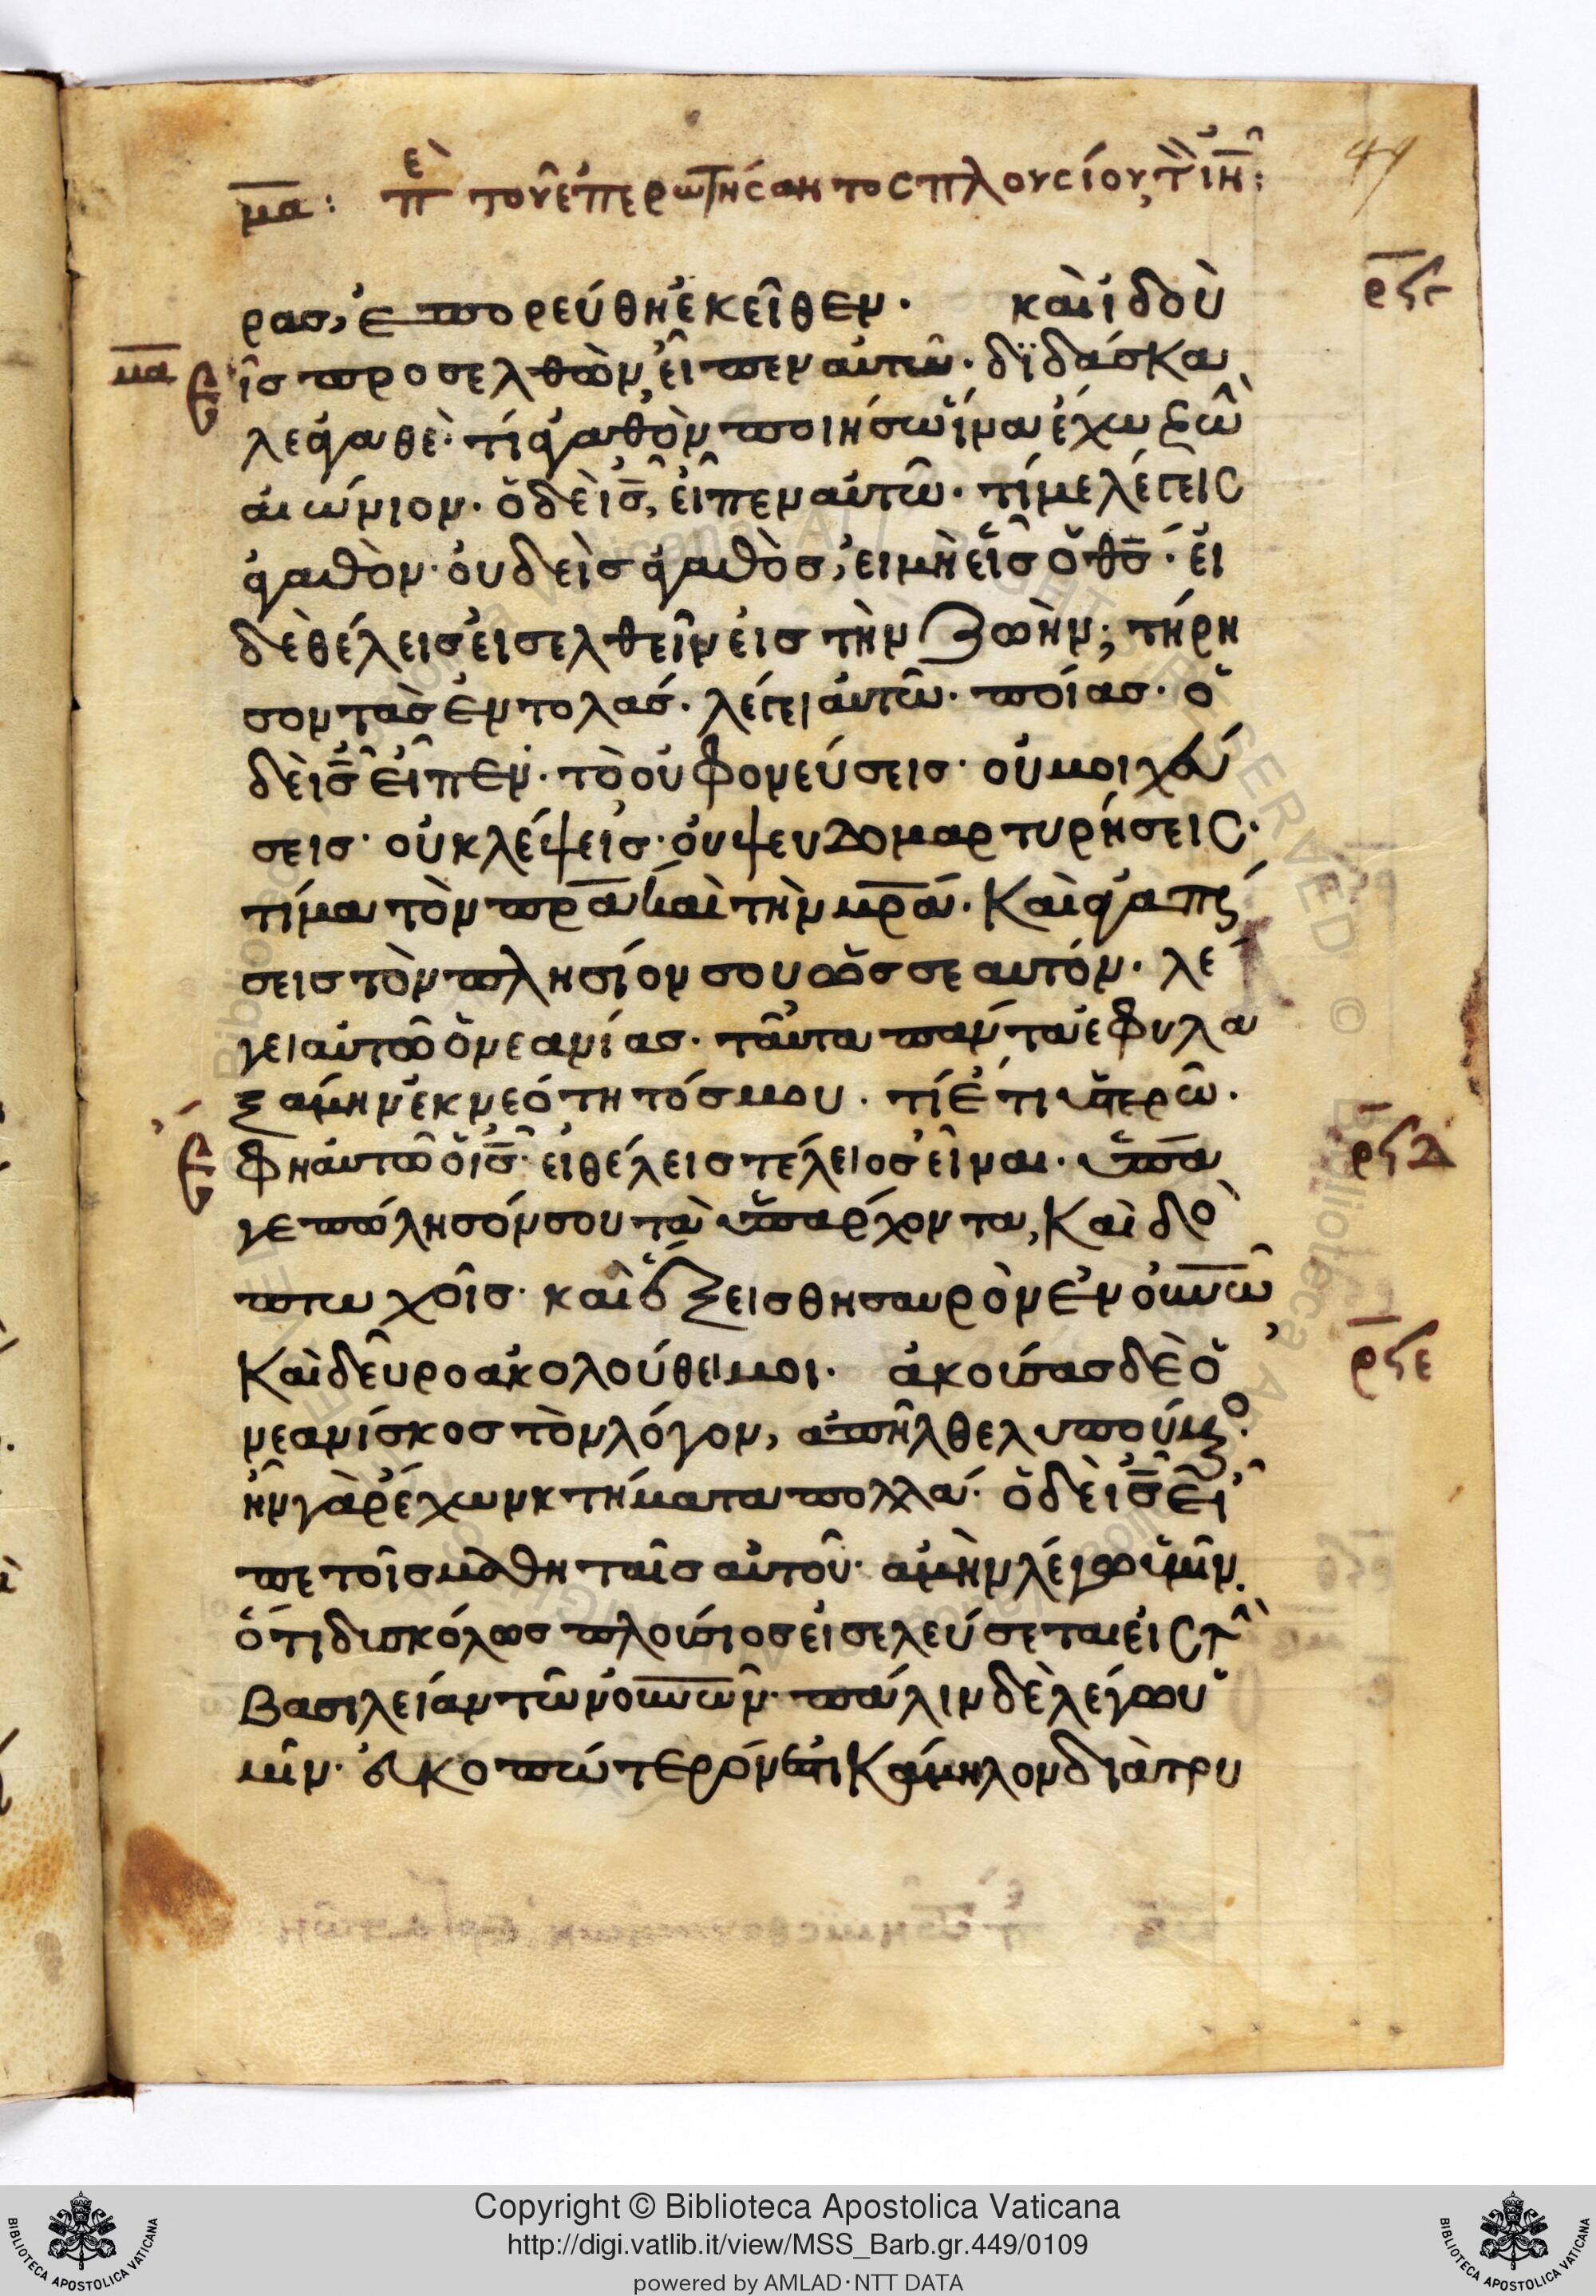 μα: πε τοῦ ἐπερωτήσαντος πλουσίου, τὸν ιν:
49
ρας, ἐπορεύθη ἐκεῖθεν. καὶ ἰδοὺ
ρϟγ
μα
εἷς προσελθὼν, εἶπεν αὐτῶ. διδάσκα
λε ἀγαθὲ. τί ἀγαθὸν ποιήσω ἵνα ἔχω ζωὴν
αἰώνιον. ὁ δὲ ις, εἶπεν αὐτῶ. τί με λέγεις
ἀγαθὸν. οὐδεὶς ἀγαθὸς, εἰ μὴ εἷς ὁ θς. εἰ
δὲ θέλεις εἰσελθεῖν εἰς τὴν ζωὴν, τήρη
σον τὰς ἐντολάς. λέγει αὐτῶ. ποίας. ὁ
δὲ ις εἶπεν. τὸ οὐ φονεύσεις. οὐ μοιχεύ
σεις. οὐ κλέψεις. οὐ ψευδομαρτυρήσεις.
τίμα τὸν πρα καὶ τὴν μρα. καὶ ἀγαπή
σεις τὸν πλησίον σου ὡς σεαυτόν. λέ
γει αὐτῶ ὁ νεανίας. ταῦτα πάντα ἐφυλα
ξάμην ἐκ νεότητός μου. τί ἔτι ὑστερῶ.
ἔφη αὐτῶ ὁ ις. εἰ θέλεις τέλειος εἶναι. ὕπα
ρϟδ
γε πώλησόν σου τὰ ὑπάρχοντα, καὶ δὸς
πτωχοῖς. καὶ ἕξεις θησαυρὸν ἐν οὐνῶ,
καὶ δεῦρο ἀκολούθει μοι. ἀκούσας δὲ ὁ
ρϟε
νεανίσκος τὸν λόγον, ἀπῆλθε λυπούμενος.
ἦν γὰρ ἔχων κτήματα πολλά. ὁ δὲ ις εἶ
πε τοῖς μαθηταῖς αὐτοῦ. ἀμὴν λέγω ὑμῖν.
ὅτι δυσκόλως πλούσιος εἰσελεύσεται εἰς τὴν
βασιλείαν τῶν οὐνῶν. πάλιν δὲ λέγω ὑ
μῖν. εὐκοπώτερόν ἐστι κάμηλον διὰ τρυ
Copyright © Biblioteca Apostolica Vaticana
http://digi.vatlib.it/view/MSS_Barb.gr.449/0109
powered by AMLAD·NTT DATA
BIBLIOTECA APOSTOLICA VATICANA
BIBLIOTECA APOSTOLICA VATICANA